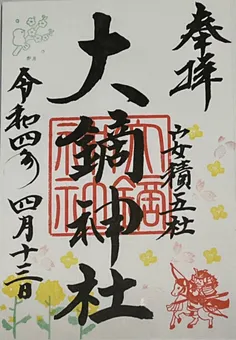 奉拝
安積五社
大鏑神社
令和四年 四月十三日